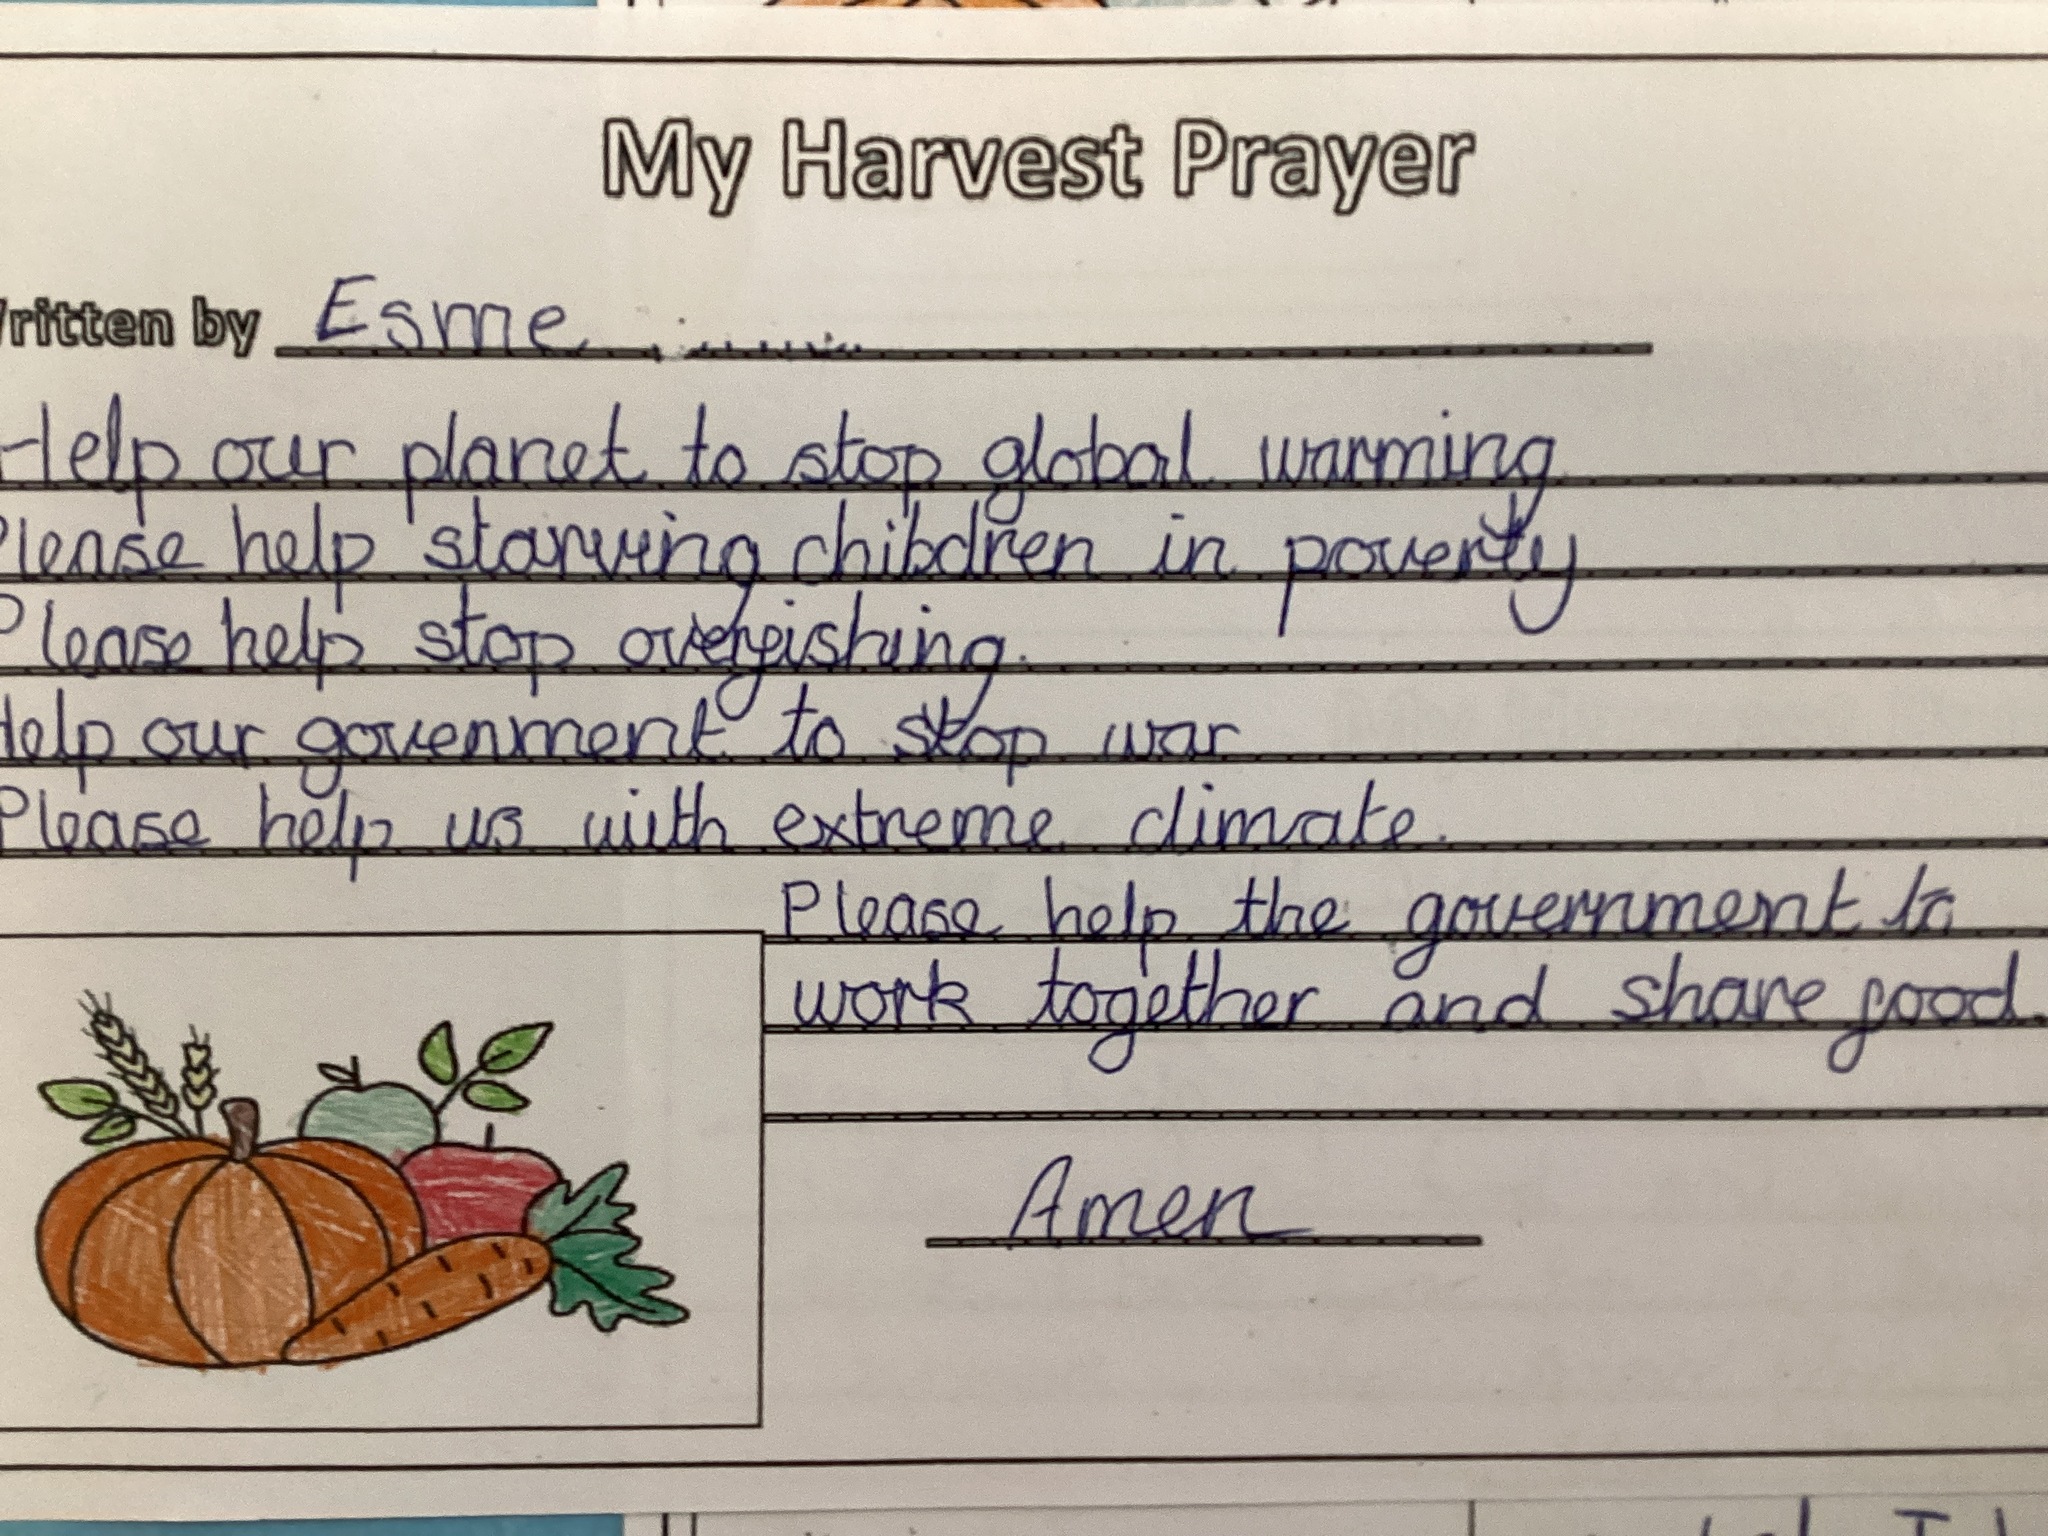 My Harvest Prayer
Written by Esme
Help our planet to stop global warming
Please help starving children in poverty
Please help stop overfishing.
Help our govenment to stop war
Please help us with extreme climate.
Please help the government to
work together and share food.
Amen